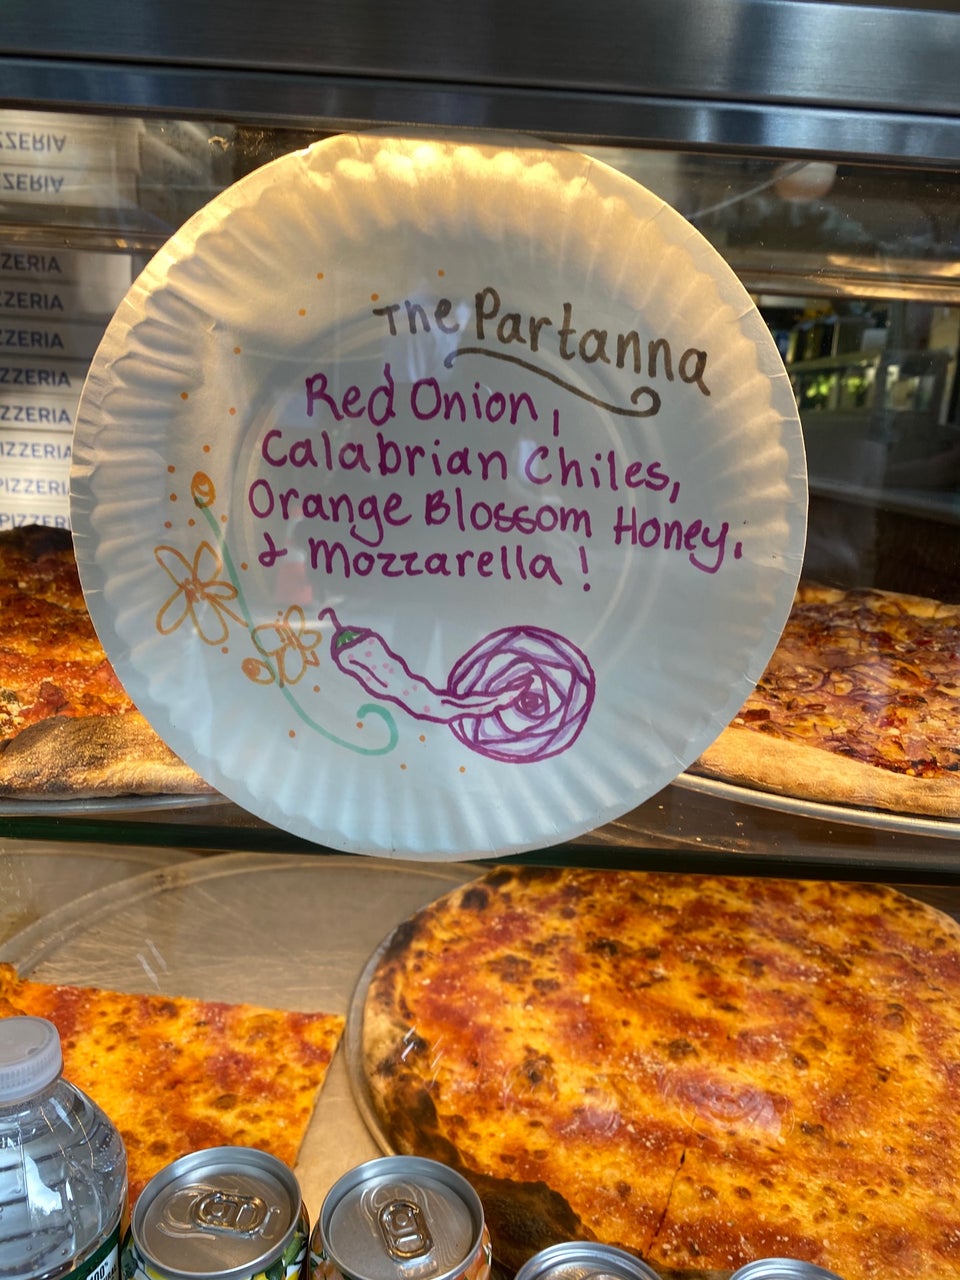 ZZERIA
ZZERIA
ZZERIA
ZZERIA
ZZERIA
ZZERIA
ZZERIA
IZZERIA
PIZZERI
PIZZER
The Partanna
Red Onion,
Calabrian Chiles,
Orange Blossom Honey,
& Mozzarella!